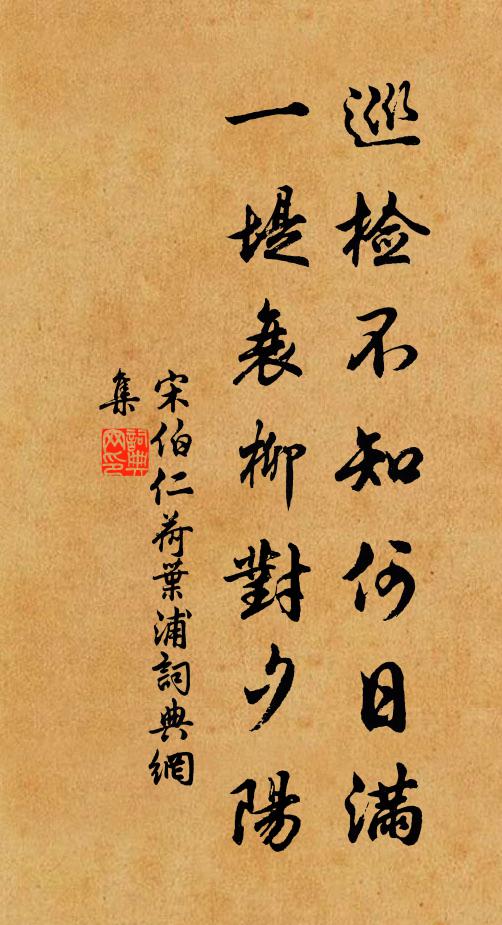 巡檢不知何日滿
一堤衰柳對夕陽
宋伯仁荷葉浦詞典網
集
詞典
網印